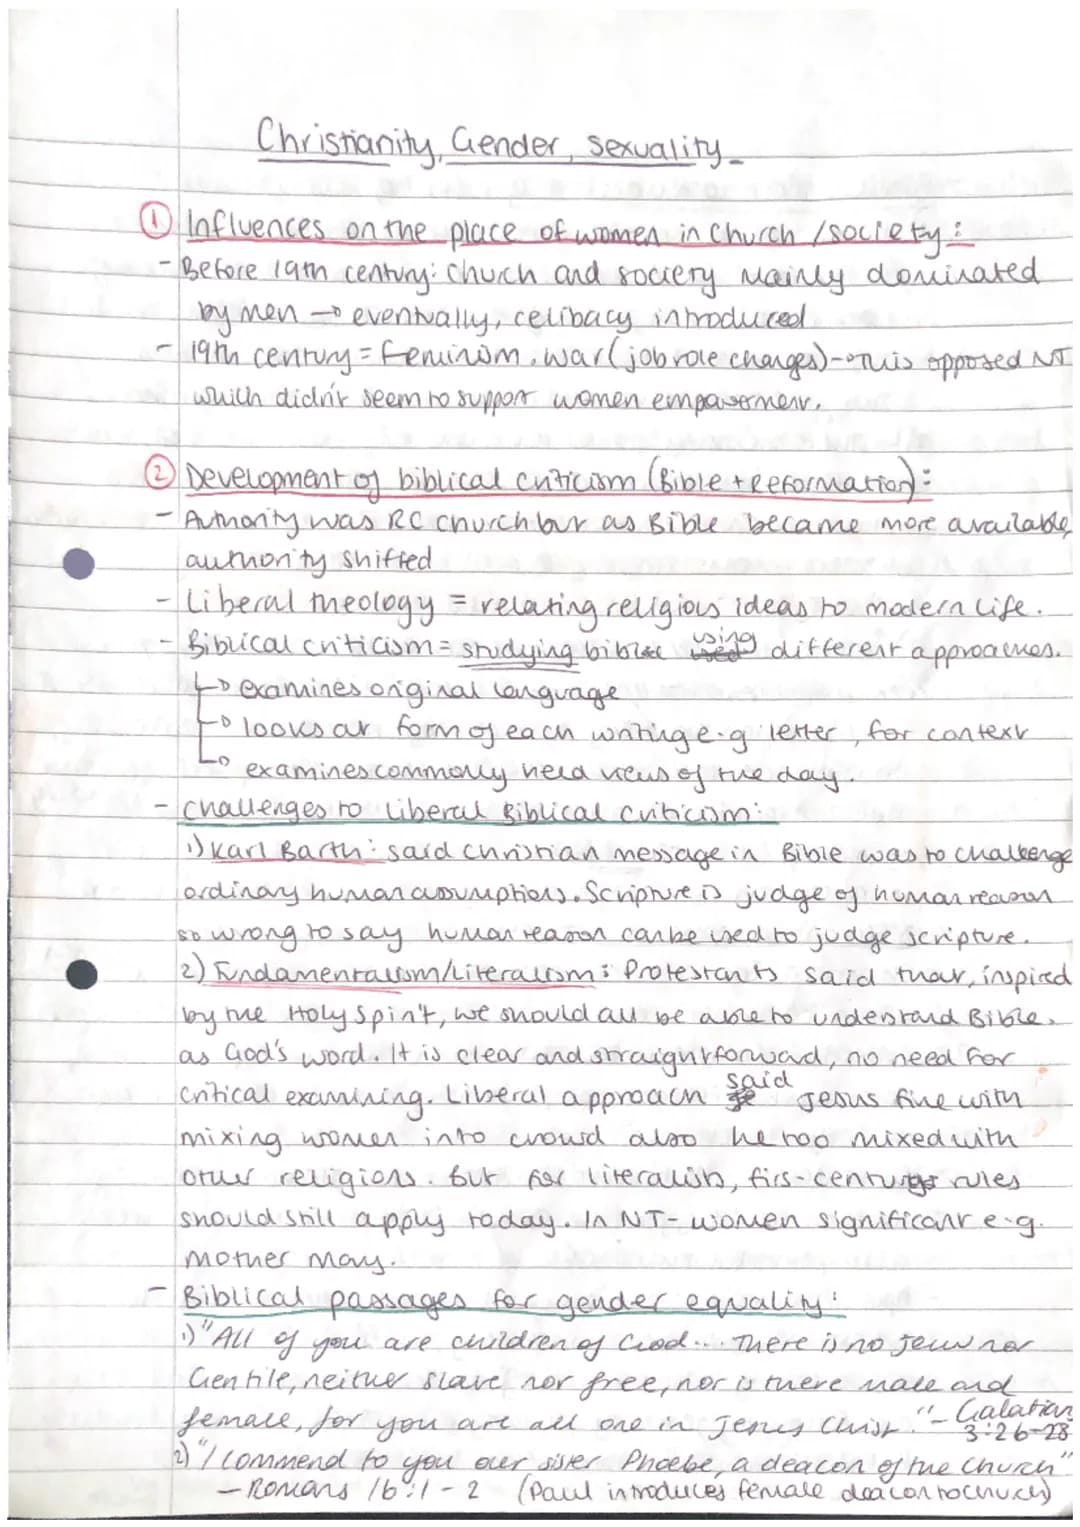 Christianity, Gender, Sexuality
① Influences on the place of women in Church / society:
- Before 19th century: church and society mainly dominated
by men → eventually, celibacy introduced
- 19th century = feminism, war (job role changes) → This opposed NT
which didn't seem to support women empowerment.
② Development of biblical criticism (Bible + Reformation):
- Authority was RC church but as Bible became more available,
authority shifted
- Liberal theology = relating religious ideas to modern life.
- Biblical criticism = studying bible using different approaches.
→ examines original language
→ looks at form of each writing e.g letter, for context
→ examines commonly held views of the day.
- Challenges to Liberal Biblical Criticism:
1) Karl Barth: said Christian message in Bible was to challenge
ordinary human assumptions. Scripture is judge of human reason
so wrong to say human reason can be used to judge scripture.
2) Fundamentalism/Literalism: Protestants said that, inspired
by the Holy Spirit, we should all be able to understand Bible,
as God's word. It is clear and straightforward, no need for
critical examining. Liberal approach said Jesus fine with
mixing women into crowd also he too mixed with
other religions. But for literalists, firs-century rules
should still apply today. In NT - women significant e.g.
mother Mary.
- Biblical passages for gender equality:
1) "All of you are children of God... There is no Jew nor
Gentile, neither slave nor free, nor is there male and
female, for you are all one in Jesus Christ." - Galatians
3:26-28
2) "I commend to you our sister Phoebe, a deacon of the church"
- Romans 16:1-2 (Paul introduces female deacon to church)